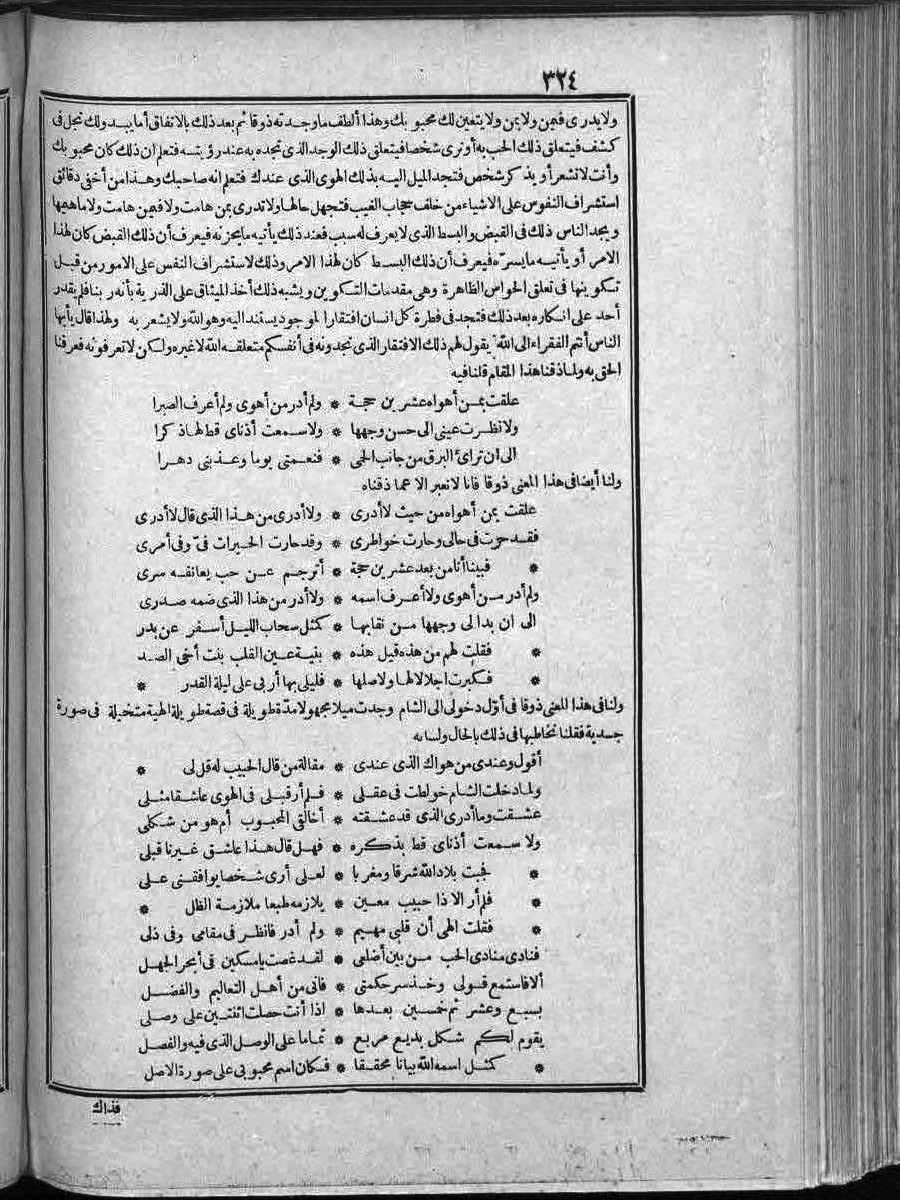 ٣٢٤
ولا يدرى فيمن ولا بمن ولا يتعين لك محبوبك وهذا ألطف ما وجدته ذوقا ثم بعد ذلك بالاتفاق أما يبدو لك تجل فى
كشف فيتعلق ذلك الحب به أو ترى شخصا فيتعلق ذلك الوجد الذى تجده به عند رؤيته فتعلم ان ذلك كان محبوبك
وأنت لا تشعر أو يذكر شخص فتجد الميل اليه بذلك الهوى الذى عندك فتعلم انه صاحبك وهذا من أخفى دقائق
استشراف النفوس على الاشياء من خلف حجاب الغيب فتجهل حالها ولا تدرى بمن هامت ولا فيمن هامت ولا ما هيمها
ويجد الناس ذلك فى القبض والبسط الذى لا يعرف له سبب فعند ذلك يأتيه ما يحزنه فيعرف أن ذلك القبض كان لهذا
الامر أو يأتيه ما يسره فيعرف أن ذلك البسط كان لهذا الامر وذلك لاستشراف النفس على الامور من قبل
تكوينها فى تعلق الحواس الظاهرة وهى مقدمات التكوين ويشبه ذلك أخذ الميثاق على الذرية بأنه ربنا فلم يقدر
أحد على انكاره بعد ذلك فتجد فى فطرة كل انسان افتقارا لموجود يستند اليه وهو الله ولا يشعر به ولهذا قال يأيها
الناس أنتم الفقراء الى الله يقول لهم ذلك الافتقار الذى تجدونه فى أنفسكم متعلقه الله لا غيره ولكن لا تعرفونه فعرفنا
الحق به ولما ذقنا هذا المقام قلنا فيه
علقت بمن أهواه عشرين حجة * ولم أدر من أهوى ولم أعرف الصبرا
ولا نظرت عينى الى حسن وجهها * ولا سمعت أذناى قط لها ذكرا
الى ان تراءى البرق من جانب الحمى * فنعمنى يوما وعذبنى دهرا
ولنا أيضا فى هذا المعنى ذوقا فانا لا نعبر الا عما ذقناه
علقت بمن أهواه من حيث لا أدرى * ولا أدرى من هذا الذى قال لا أدرى
فقد حرت فى حالى وحارت خواطرى * وقد حارت الحيرات فىّ وفى أمرى
* فبينا أنا من بعد عشرين حجة * أترجم عن حب يعانقه سرى
ولم أدر من أهوى ولا أعرف اسمه * ولا أدر من هذا الذى ضمه صدرى
الى ان بدا لى وجهها من نقابها * كمثل سحاب الليل أسفر عن بدر
* فقلت لهم من هذه قيل هذه * بنية عين القلب بنت أخى الصد
* فكبرت اجلالا لها ولاصلها * فليلى بها أربى على ليلة القدر *
ولنا فى هذا المعنى ذوقا فى أول دخولى الى الشام وجدت ميلا مجهولا مدة طويلة فى قصة طويلة الهية متخيلة فى صورة
جسدية فقلنا نخاطبها فى ذلك بالحال ولسانه
أقول وعندى من هواك الذى عندى * مقالة من قال الحبيب له قل لى *
ولما دخلت الشام خولطت فى عقلى * فلم أر قبلى فى الهوى عاشقا مثلى
عشقت وما أدرى الذى قد عشقته * أخالقى المحبوب أم هو من شكلى
ولا سمعت أذناى قط بذكره * فهل قال هذا عاشق غيرنا قبلى
* فجبت بلاد الله شرقا ومغربا * لعلى أرى شخصا يوافقنى على
* فلم أر الا ذا حبيب معين * يلازمه طبعا ملازمة الظل *
* فقلت الهى أن قلبى مهيم * ولم أدر فانظر فى مقامى وفى ذلى
فنادى منادى الحب من بين أضلعى * لقد غصت يا مسكين فى أبحر الجهل
ألا فاستمع قولى وخذ سر حكمتى * فانى من أهل التعاليم والفضل
بسبع وعشر ثم خمسين بعدها * اذا أنت حصلت اثنتين على وصلى
يقوم لكم شكل بديع مربع * تماما على الوصل الذى فيه والفصل
* كمثل اسمه الله بيانا محققا * فكان اسم محبوبى على صورة الاصل
فذاك